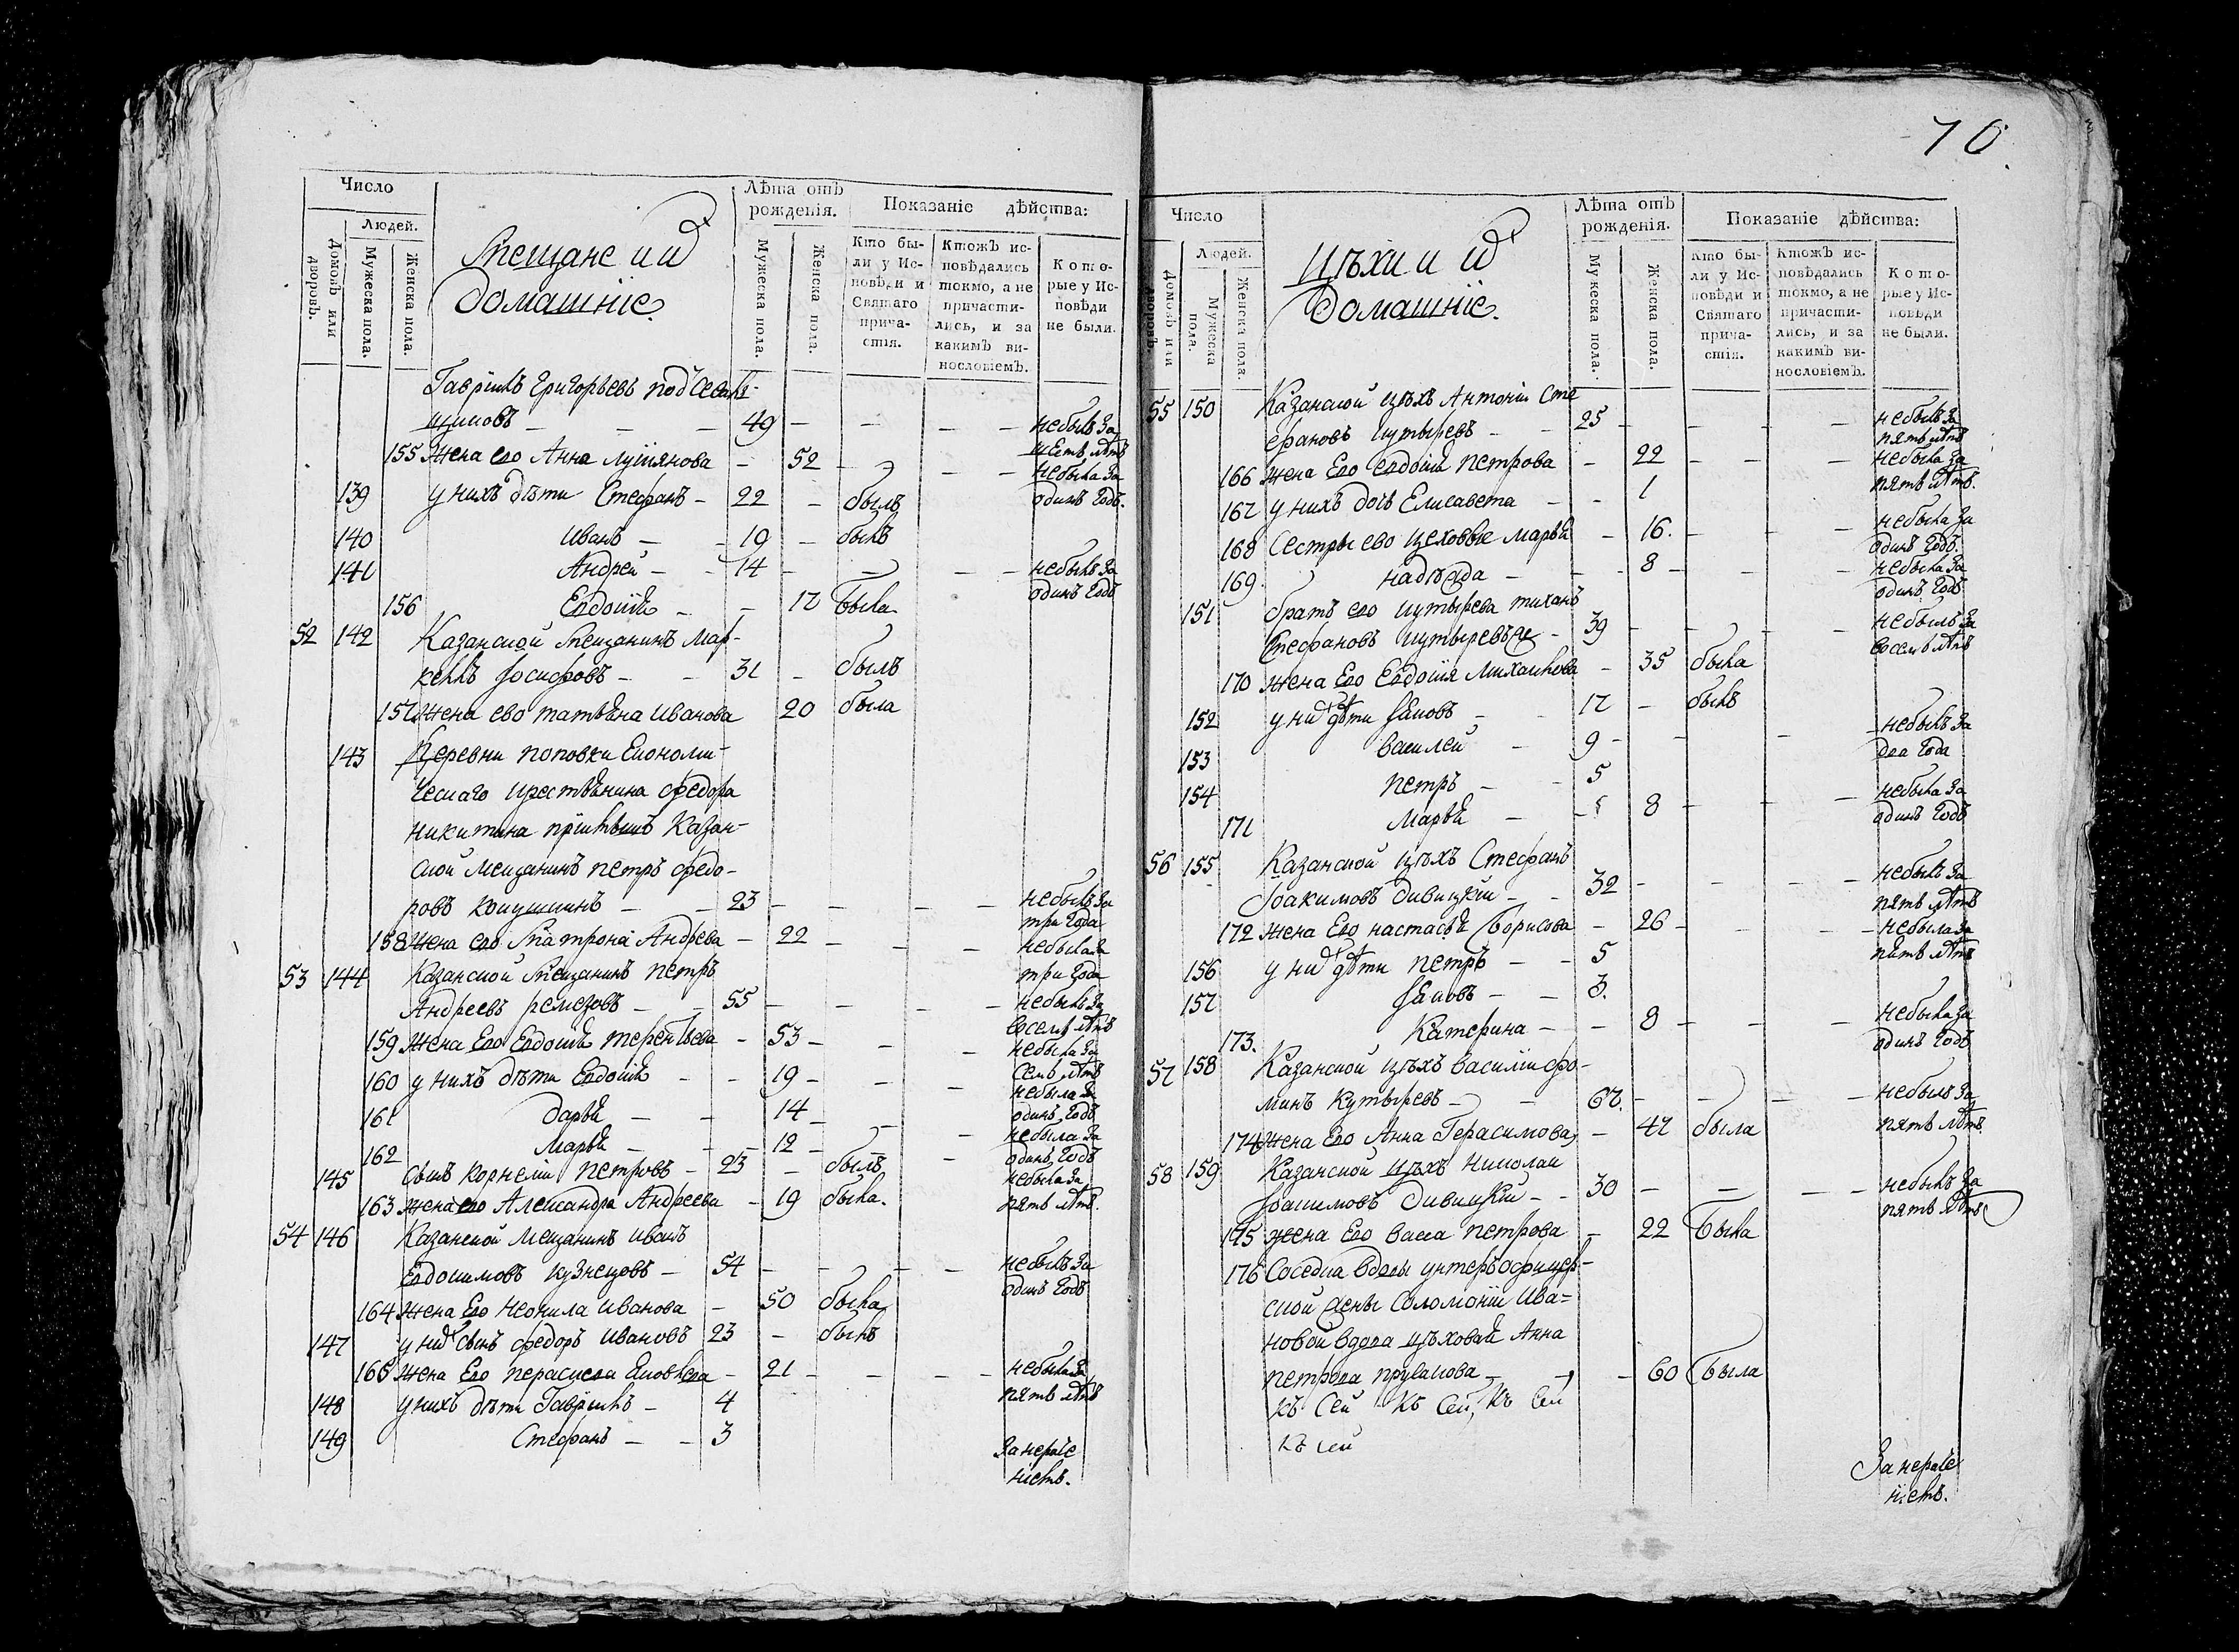 70.
Число
Людей.
Домовъ или дворовъ.
Мужеска пола.
Женска пола.
Мещане и ихъ
Домашніе.
Лѣта отъ рожденія.
Мужеска пола.
Женска пола.
Показаніе дѣйства:
Кто были у Исповѣди и Святаго причастія.
Ктожъ исповѣдались токмо, а не причастились, и за какимъ винословіемъ.
Которые у Исповѣди не были.
Гаврїилъ Григорьевъ
49 — — — — небылъ за
шесть лѣтъ
155 Жена его Анна Лукиянова — 52 — — — небыла за
одинъ годъ.
139 у нихъ дѣти Стефанъ — 22 — былъ
140 Иванъ — 19 — былъ
141 Андрей — 14 — — — — небылъ за
одинъ годъ
156 Евдокия — — 17 была
52 142 Казанской мещанинъ Мар-
келлъ Іосифовъ — 31 — былъ
157 Жена ево татьяна Иванова 20 была
143 Деревни поповки Економи-
ческаго крестьянина Федора
никитина Казан-
ской мещанинъ петръ Федо-
ровъ кокушкинъ — 23 — — — — небылъ за
три года
158 Жена его Матрона Андреева — 22 — — — небыла за
три года
53 144 Казанской Мещанинъ петръ
Андреевъ ремезовъ — 55 — — — небылъ за
восемь лѣтъ
159 Жена Его Евдокия терентьева — 53 — — — небыла за
семь лѣтъ
160 у нихъ дѣти Евдокия — 19 — — — небыла за
одинъ годъ
161 дарья — — 14 — — — небыла за
одинъ годъ
162 Марья — — 12 — — небыла за
пять лѣтъ.
145 Сынъ корнелий Петровъ — 23 — былъ
163 жена его Александра Андреева — 19 была.
54 146 Казанской Мещанинъ Иванъ
Евдокимовъ кузнецовъ — 54 — — — — небылъ за
одинъ годъ
164 Жена Его Неонила Иванова — 50 была
147 у нихъ сынъ федоръ Ивановъ 23 — былъ
165 Жена Его параскева Яковлева — 21 — — — — небыла за
пять лѣтъ
148 у нихъ дѣти Гаврїилъ — 4
149 Стефанъ — — 3
За нераче
ніемъ.
Число
Людей.
Домовъ или дворовъ.
Мужеска пола.
Женска пола.
Цѣхи и ихъ
Домашніе.
Лѣта отъ рожденія.
Мужеска пола.
Женска пола.
Показаніе дѣйства:
Кто были у Исповѣди и Святаго причастія.
Ктожъ исповѣдались токмо, а не причастились, и за какимъ винословіемъ.
Которые у Исповѣди не были.
55 150 Казанской цѣхъ Антоний Сте
фановъ кутыревъ — 25 — — — — небылъ за
пять лѣтъ
166 жена Его евдокия петрова — 22 — — — небыла за
пять лѣтъ.
167 у нихъ дочь Елисавета — — 1
168 Сестры ево цеховые марья — 16. — — — небыла за
одинъ годъ.
169. надежда — — 8 — — — небыла за
одинъ годъ
151 братъ его кутырева тиханъ
Стефановъ кутыревъ же — 39 — — — — небылъ за
восемь лѣтъ
170 жена Его Евдокия Михаилова — 35 была
152 у нихъ дѣти Яковъ — 17 — былъ
153 василей — 9 — — — — небылъ за
два года
154 петръ — — 5
171 марья — — 8 — — — небыла за
одинъ годъ
56 155 Казанской цѣхъ Стефанъ
Іоакимовъ дивицкій — 32 — — — — небылъ за
пять лѣтъ
172 жена Его настасья Борисова — 26 — — — небыла за
пять лѣтъ
156 у нихъ дѣти петръ — — 5
157 Яковъ — — 3.
173. Катерина — — 8 — — — небыла за
одинъ годъ
57 158 Казанской цѣхъ василий фо-
минъ кутыревъ — — 67. — — — — небылъ за
пять лѣтъ.
174 жена Его Анна Герасимова — 47 была
58 159 Казанской цѣхъ Николай
Іоакимовъ дивицкій — — 30 — — — — небылъ за
пять лѣтъ
175 жена Его васса петрова — 22 была
176 Соседка вдовы унтеръофицер-
ской жены Соломонии Ива=
новой вдова цѣховая Анна
петрова — — 60 была
къ сей къ сей, къ сей
къ сей
За нераче
ніемъ.